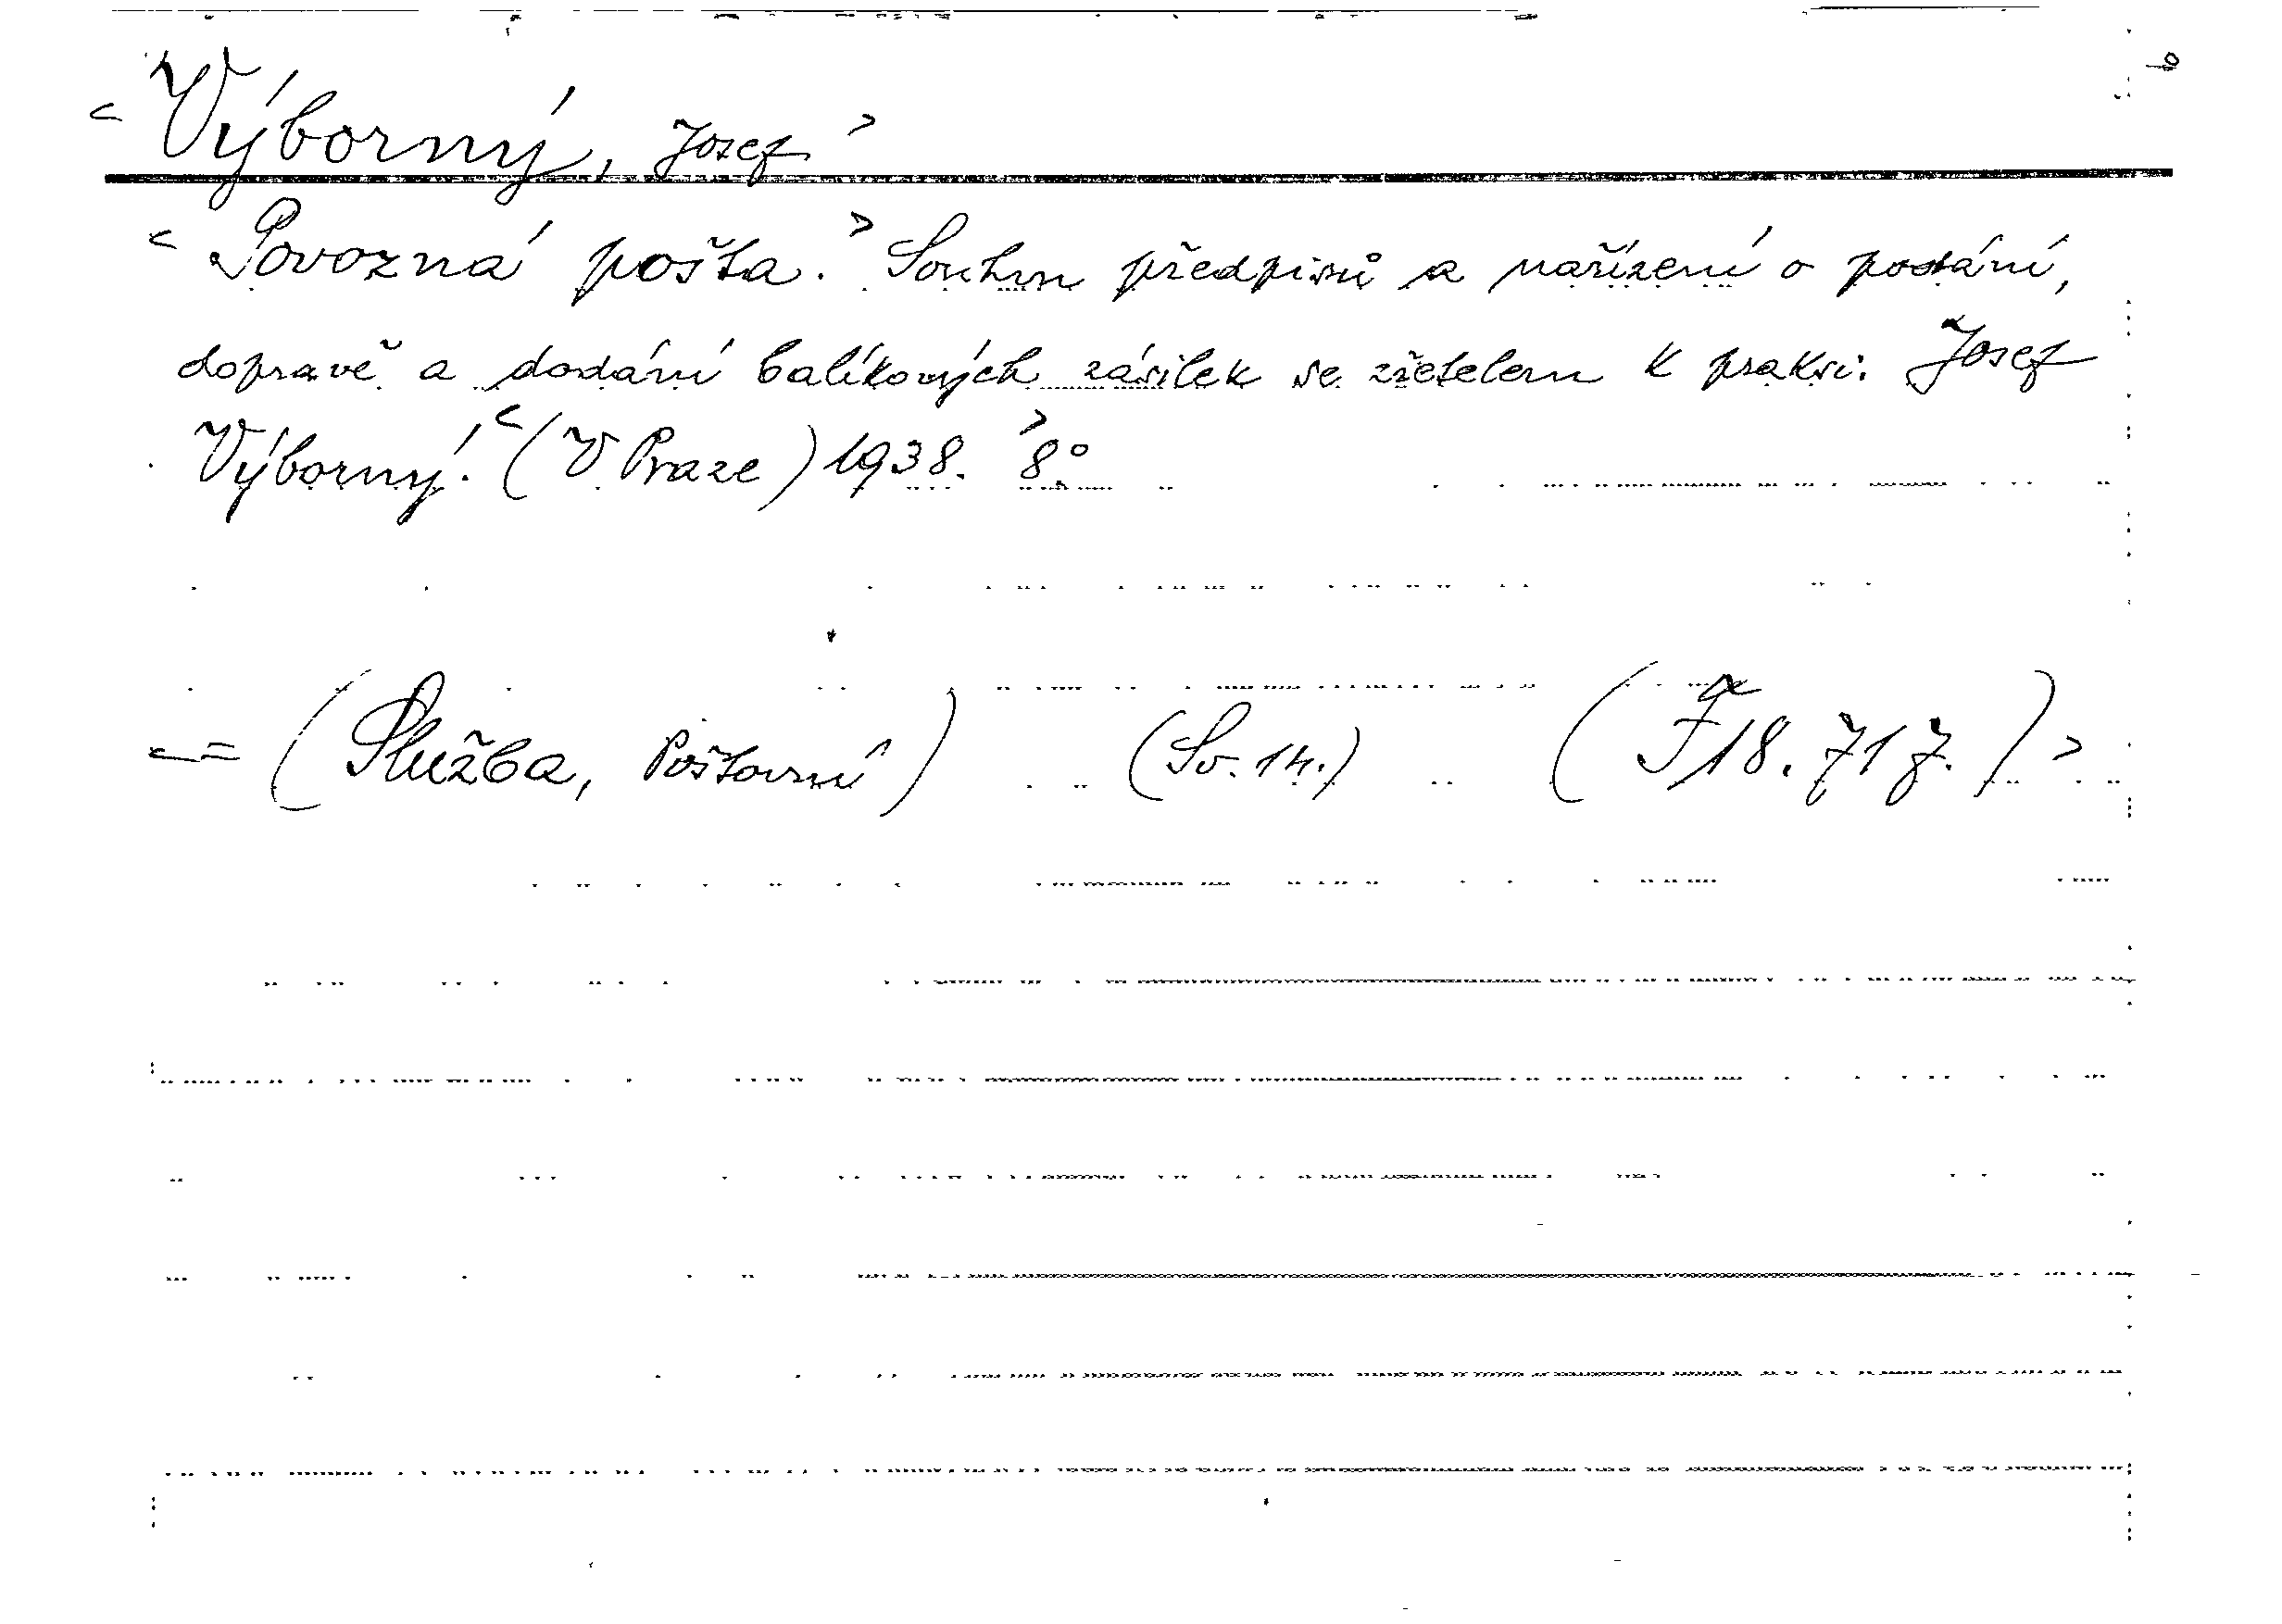 < Výborný, Josef >
< Povozná pošta. > Souhrn předpisů a nařízení o podání,
dopravě a dodání balíkových zásilek se zřetelem k praksi. Josef
Výborný. < (V Praze) 1938. > 8°
<= (Služba, Poštovní) (Sv. 14.) (F 18.717.) >